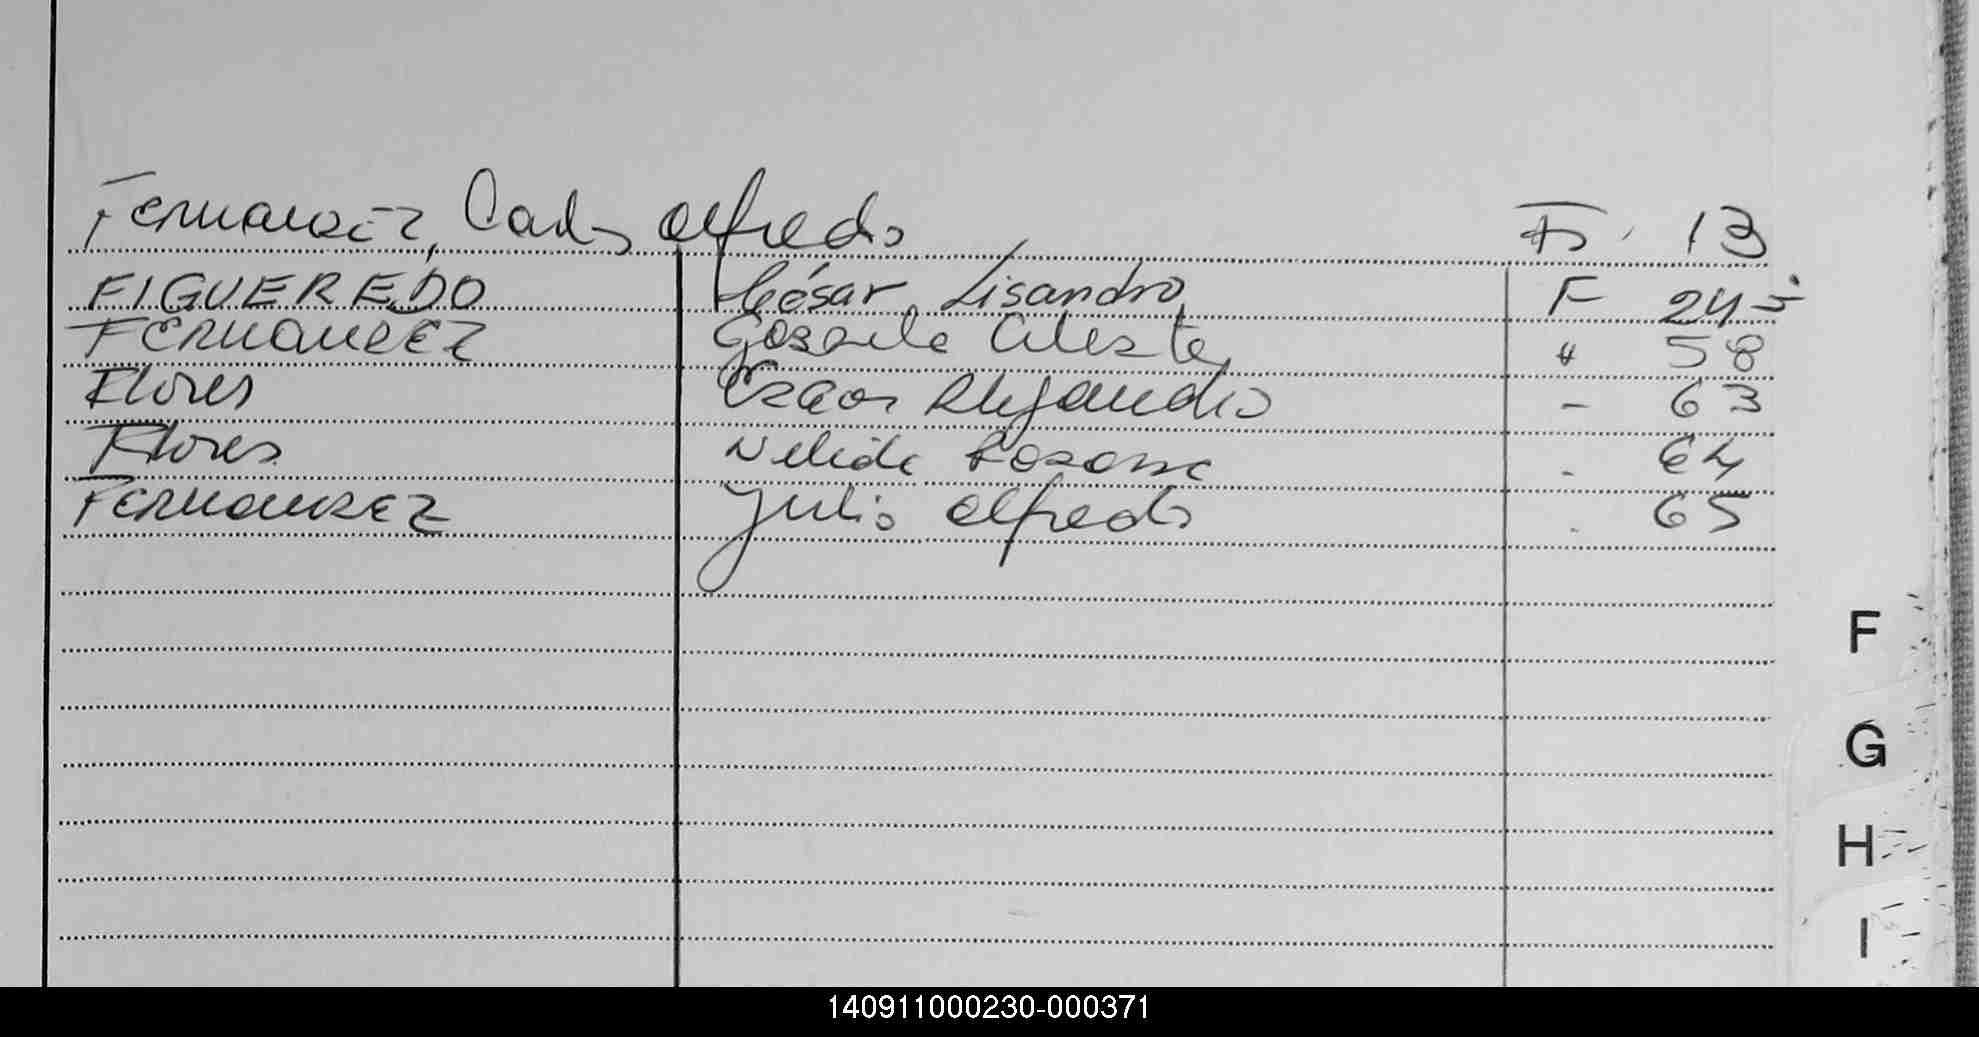 Fernandez, Carlos Alfredo Fs. 13
FIGUEREDO César Lisandro F 245
FERNANDEZ Celeste " 58
Flores Oscar Alejandro - 63
Flores Nelida Rosana - 64
Fernandez Julio Alfredo . 65
F
G
H
I
140911000230-000371